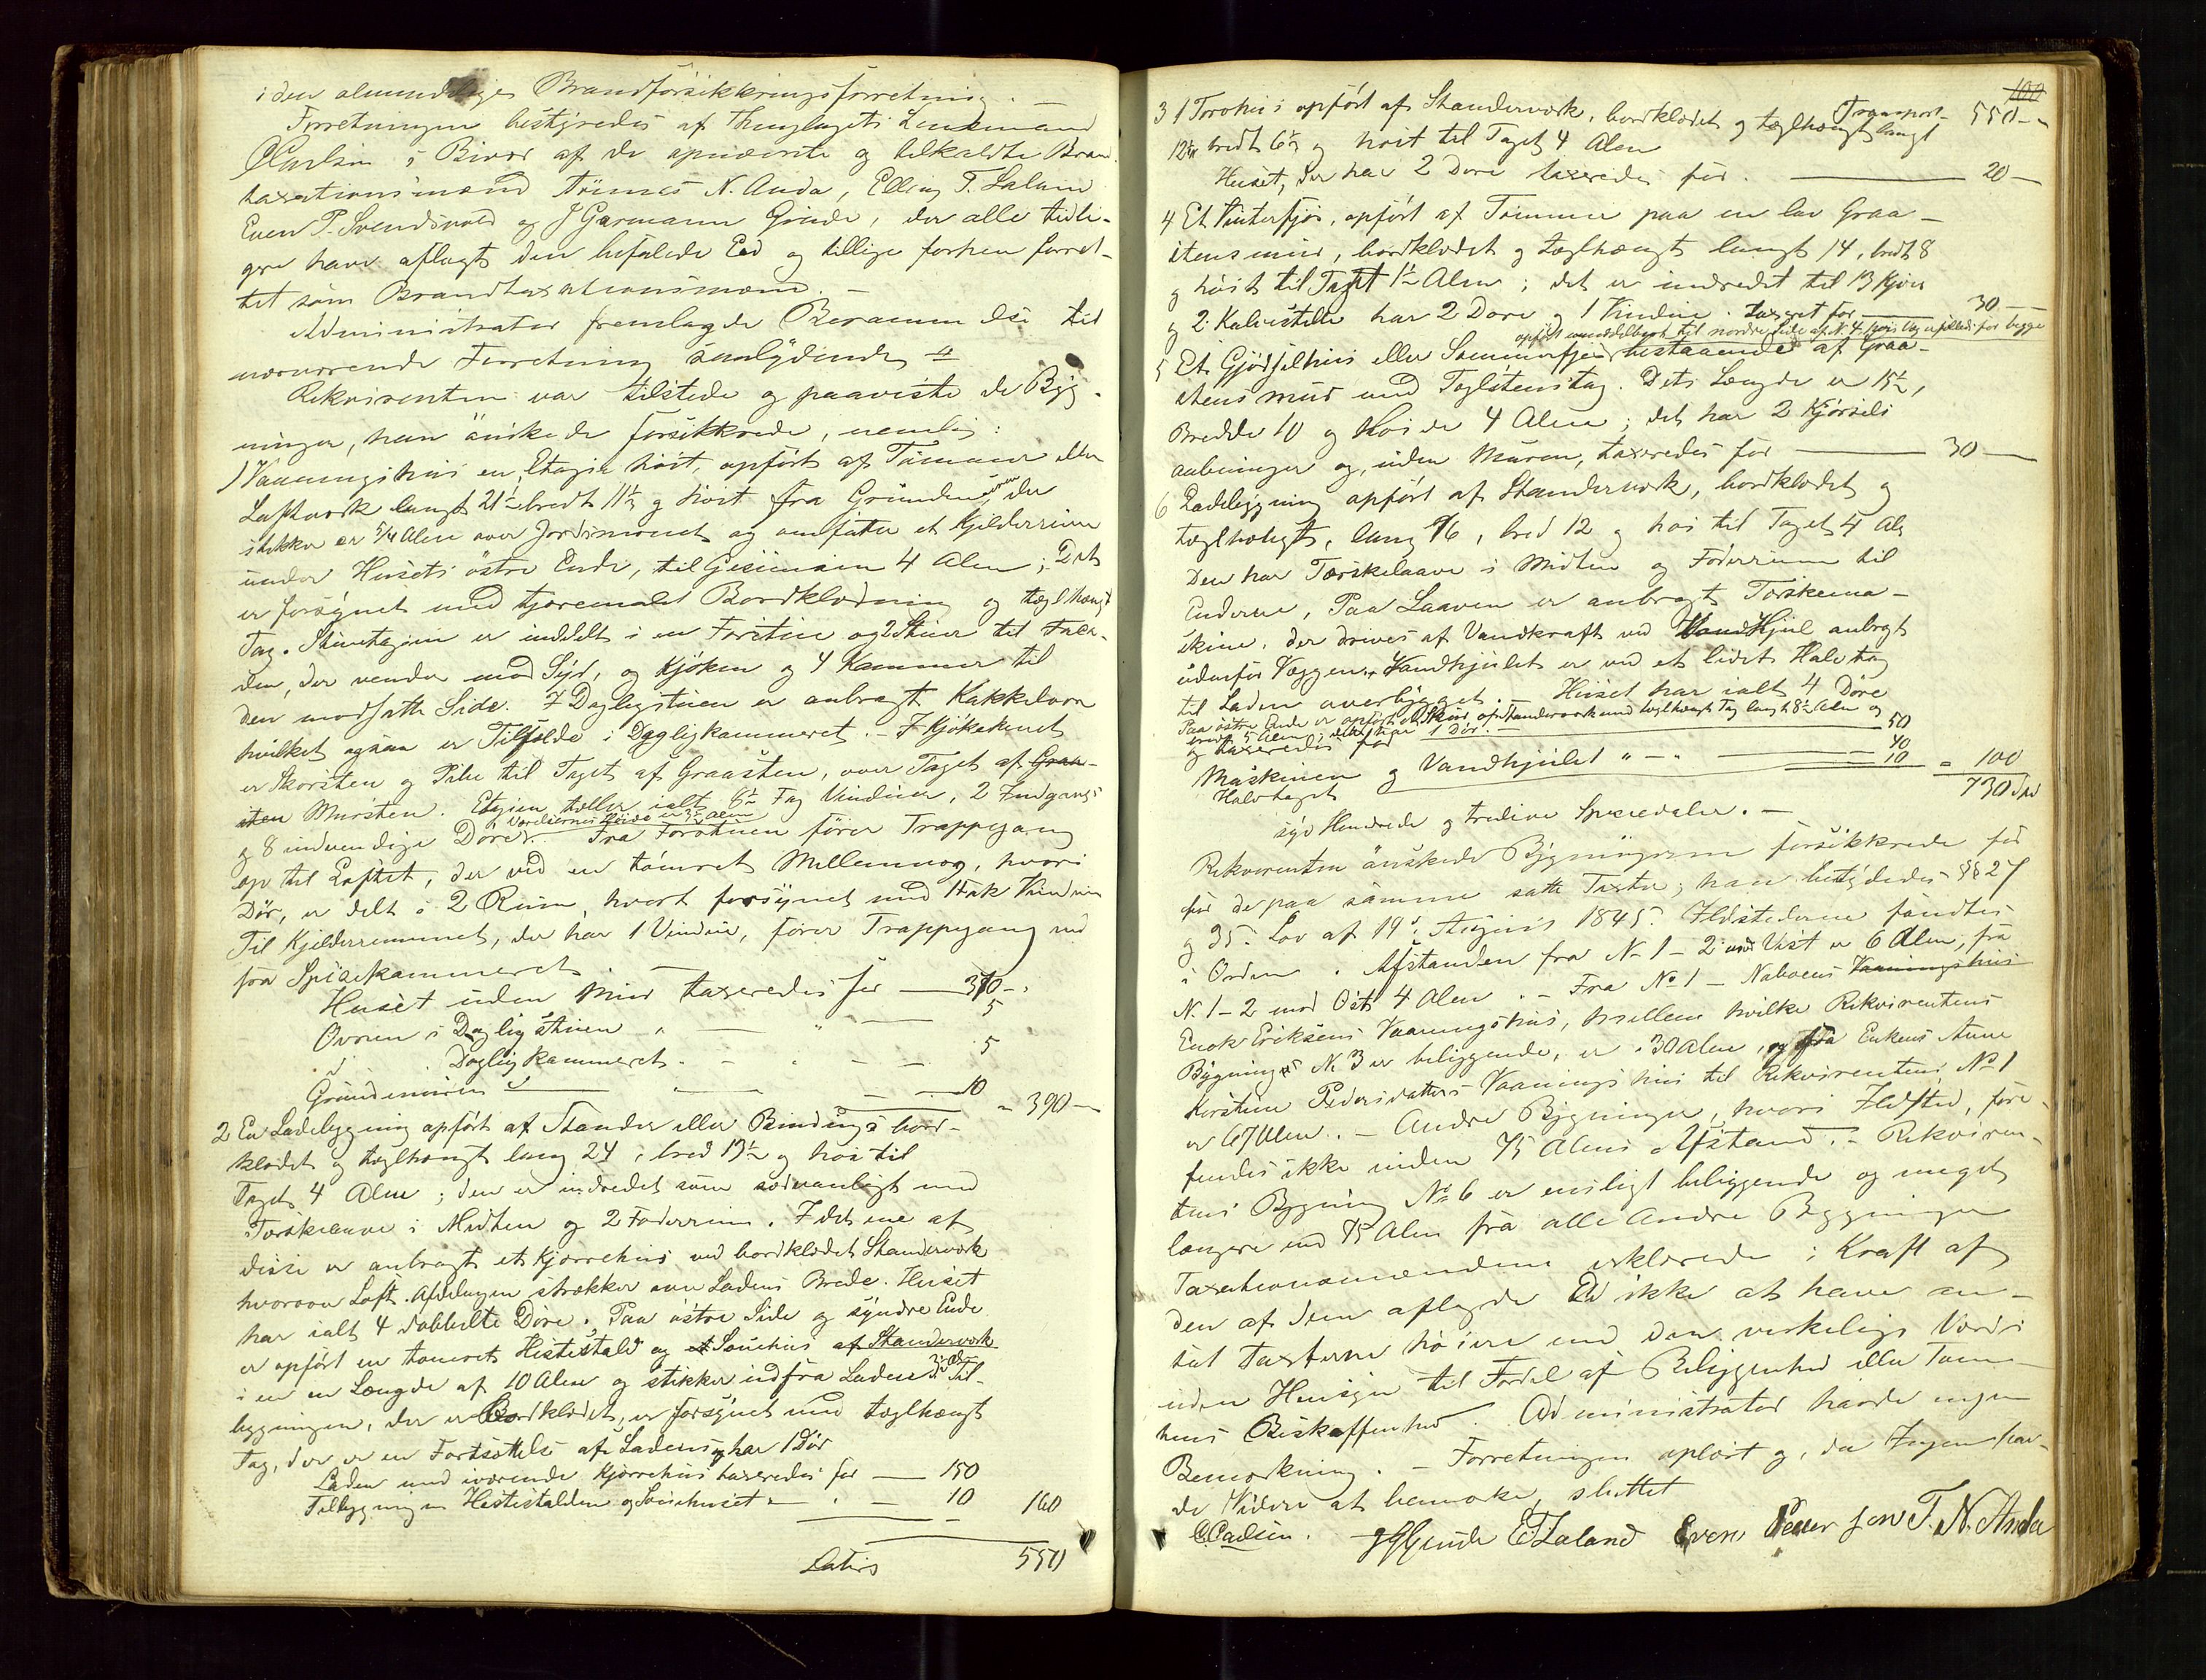 i den almindelige Brandforsikkringsforretning. —
Forretningen bestyredes af Thinglagets Lensmand
C Carlsen i Bivær af de opnævnte og tilkaldte Brand-
taxationsmænd Tönnes N. Anda, Elling T. Laland
Even P. Svendsvold og J Garmann Grude, der alle tidli-
gere have aflagt den befalede Eed og tillige forhen forret-
tet som Brandtaxationsmænd. —
Administrator fremlagde Berammelse til
nærværende Forretning saalydende
Rekvirenten var tilstede og paaviste de Byg-
ninger, han önskede forsikkrede, nemlig:
1 Vaaningshus en Etagie höit, opfört af Tömmer eller
Laftverk langt 21½ bredt 11½ og höit fra Grundmuren, der
stikker er 5/4 Alen over Jordsmonet og omfatter et Kjelderrum
under Husets östre Ende, til Gesimsen 4 Alen; Det
er forsynet med tjæremalet Bordklædning og teglhængt
Tag. Stueetagien er inddelt i en Forstue og 2 Stuer til Faca-
den, der vender mod Syd, og Kjöken og 4 Kammer til
den modsatte Side. I Dagligstuen er anbragt Kakkelovn
hvilket ogsaa er Tilfælde i Dagligkammeret. – I Kjökkenet
er Skorsten og Pibe til Taget af Graasten, over Taget af Graa-
sten Mursten. Etagien tæller ialt 6½ Fag Vinduer, 2 Indgangs
Værelsernes Höide er 3½ Alen
og 8 indvendige Döre. Fra Forstuen förer Trappegang
op til Loftet, der ved en tömret Mellemvæg, hvori
Dör, er delt i 2 Rum, hvert forsynet med 1 Fak Vinduer
Til Kjelderrummet, der har 1 Vindue, förer Trappegang ned
fra Spisekammeret. —
Huset uden Mur taxeredes for — 370 –
Ovnen i Dagligstuen " — " — 5
d. Dagligkammeret. – " – – 5
Grundmuren — — – – 10 = 390 —
2 En Ladebygning opfört af Stander eller Bindings bord-
klædet og teglhængt lang 24, bred 13½ og höi til
Taget 4 Alen; den er indredet som sædvanligt med
Torskelaave i Midten og 2 Foderrum. I det ene af
disse er anbragt et Kjörrehus ved bordklædet Standerværk
hvorover Loft. Afdelingen strækker over Ladens Brede. Huset
har ialt 4 dobbelte Döre. Paa östre Side og söndre Ende
er opfört en tömret Hestestald og et Souehus af Standerværk
i en en Længde af 10 Alen og stikker ud fra Laden 3½ Al. Til-
bygningen, der er Bordklædet, er forsynet med teglhængt
Tag, der er en Fortsættelse af Ladens og har 1 Dör
Laden med iværende Kjörrehus taxeredes for — 150
Tilbygningen Hestestalden og Souehuset " — " – 10 160
Latus 550
100
Transport 550 –
3 1 Torvhus opfört af Standerværk, bordklædet og teglhængt langt
12¼ bredt 6½ og höit til Taget 4 Alen
Huset, der har 2 Döre taxeredes for. — 20 —
4 Et Vinterfjös, opfört af Tömmer paa en lav Graa-
stensmur, bordklædet og teglhængt langt 14, bredt 8
og höit til Taget 1½ Alen; det er indredet til 13 Kjör
og 2 Kalvestelle har 2 Döre og 1 Vindue. Taxeret for — 30 —
opfört umiddelbart til nordre Side af N. 4, hvis Væg er fælleds for begge
5 Et Gjödselhus eller Sommerfjös bestaaende af Graa-
stens mur med Teglstenstag. Dets Længde er 15½,
Bredde 10 og Höide 4 Alen; det har 2 Kjörsels
aabninger og, uden Muren, taxeredes for — 30 —
6 Ladebygning opfört af Standerværk, bordklædet og
teglhængt, lang 16, bred 12 og höi til Taget 4 Al.
Den har Tærskelaave i Midten og Foderrum til
Enderne, Paa Laaven er anbragt Tærskema-
skine, der drives af Vandkraft ved VandHjul anbragt
udenfor Væggen. Vandhjulet er ved et lidet Halvtag
til Laden overbygget. — Huset har ialt 4 Döre
Paa östre Ende er opfört et Skur af Standerværk med teglhængt Tag langt 8½ Alen og
bredt 5 Alen; det har 1 Dör. —
og taxeredes for — 50
Maskinen og Vandhjulet " – " — 40
Halvtaget — 10 = 100
730 Spd
syv Hundrede og tredive Speciedaler. —
Rekvirenten önskede Bygningerne forsikkrede for
for de paa samme satte Taxter; han betydedes §§ 27
og 35. Lov af 19. August 1845. Ildstederne fandtes
i Orden. Afstanden fra N. 1 – 2 mod Vest er 6 Alen, fra
N. 1 – 2 mod Öst 4 Alen. – Fra No 1 – Naboens Vaaningshus
Enok Eriksens Vaaningshus, mellem hvilke Rekvirentens
Bygning No 3 er beliggende, er 30 Alen, og fra Enkens Anne
Kirstine Pedersdatters Vaaningshus til Rekvirentens No 1
er 67 Alen. – Andre Bygninger, hvori Ildsted, fore-
findes ikke inden 75 Alens Afstand. – Rekviren-
tens Bygning No 6 er ensligt beliggende og meget
længere end 75 Alen fra alle Andre Bygninger
Taxationsmændene erklærede i Kraft af
den af dem aflagde Ed ikke at have an-
sat Taxterne höiere end den virkelige Værdi
uden Hensyn til Fordel af Beliggenhed eller Tom-
tens Beskaffenhed. Administrator havde ingen
Bemærkning. – Forretningen oplæst og, da Ingen hav-
de Videre at bemærke, sluttet
C Carlsen. JGGrude E T Laland Even Peder sen T. N. Anda